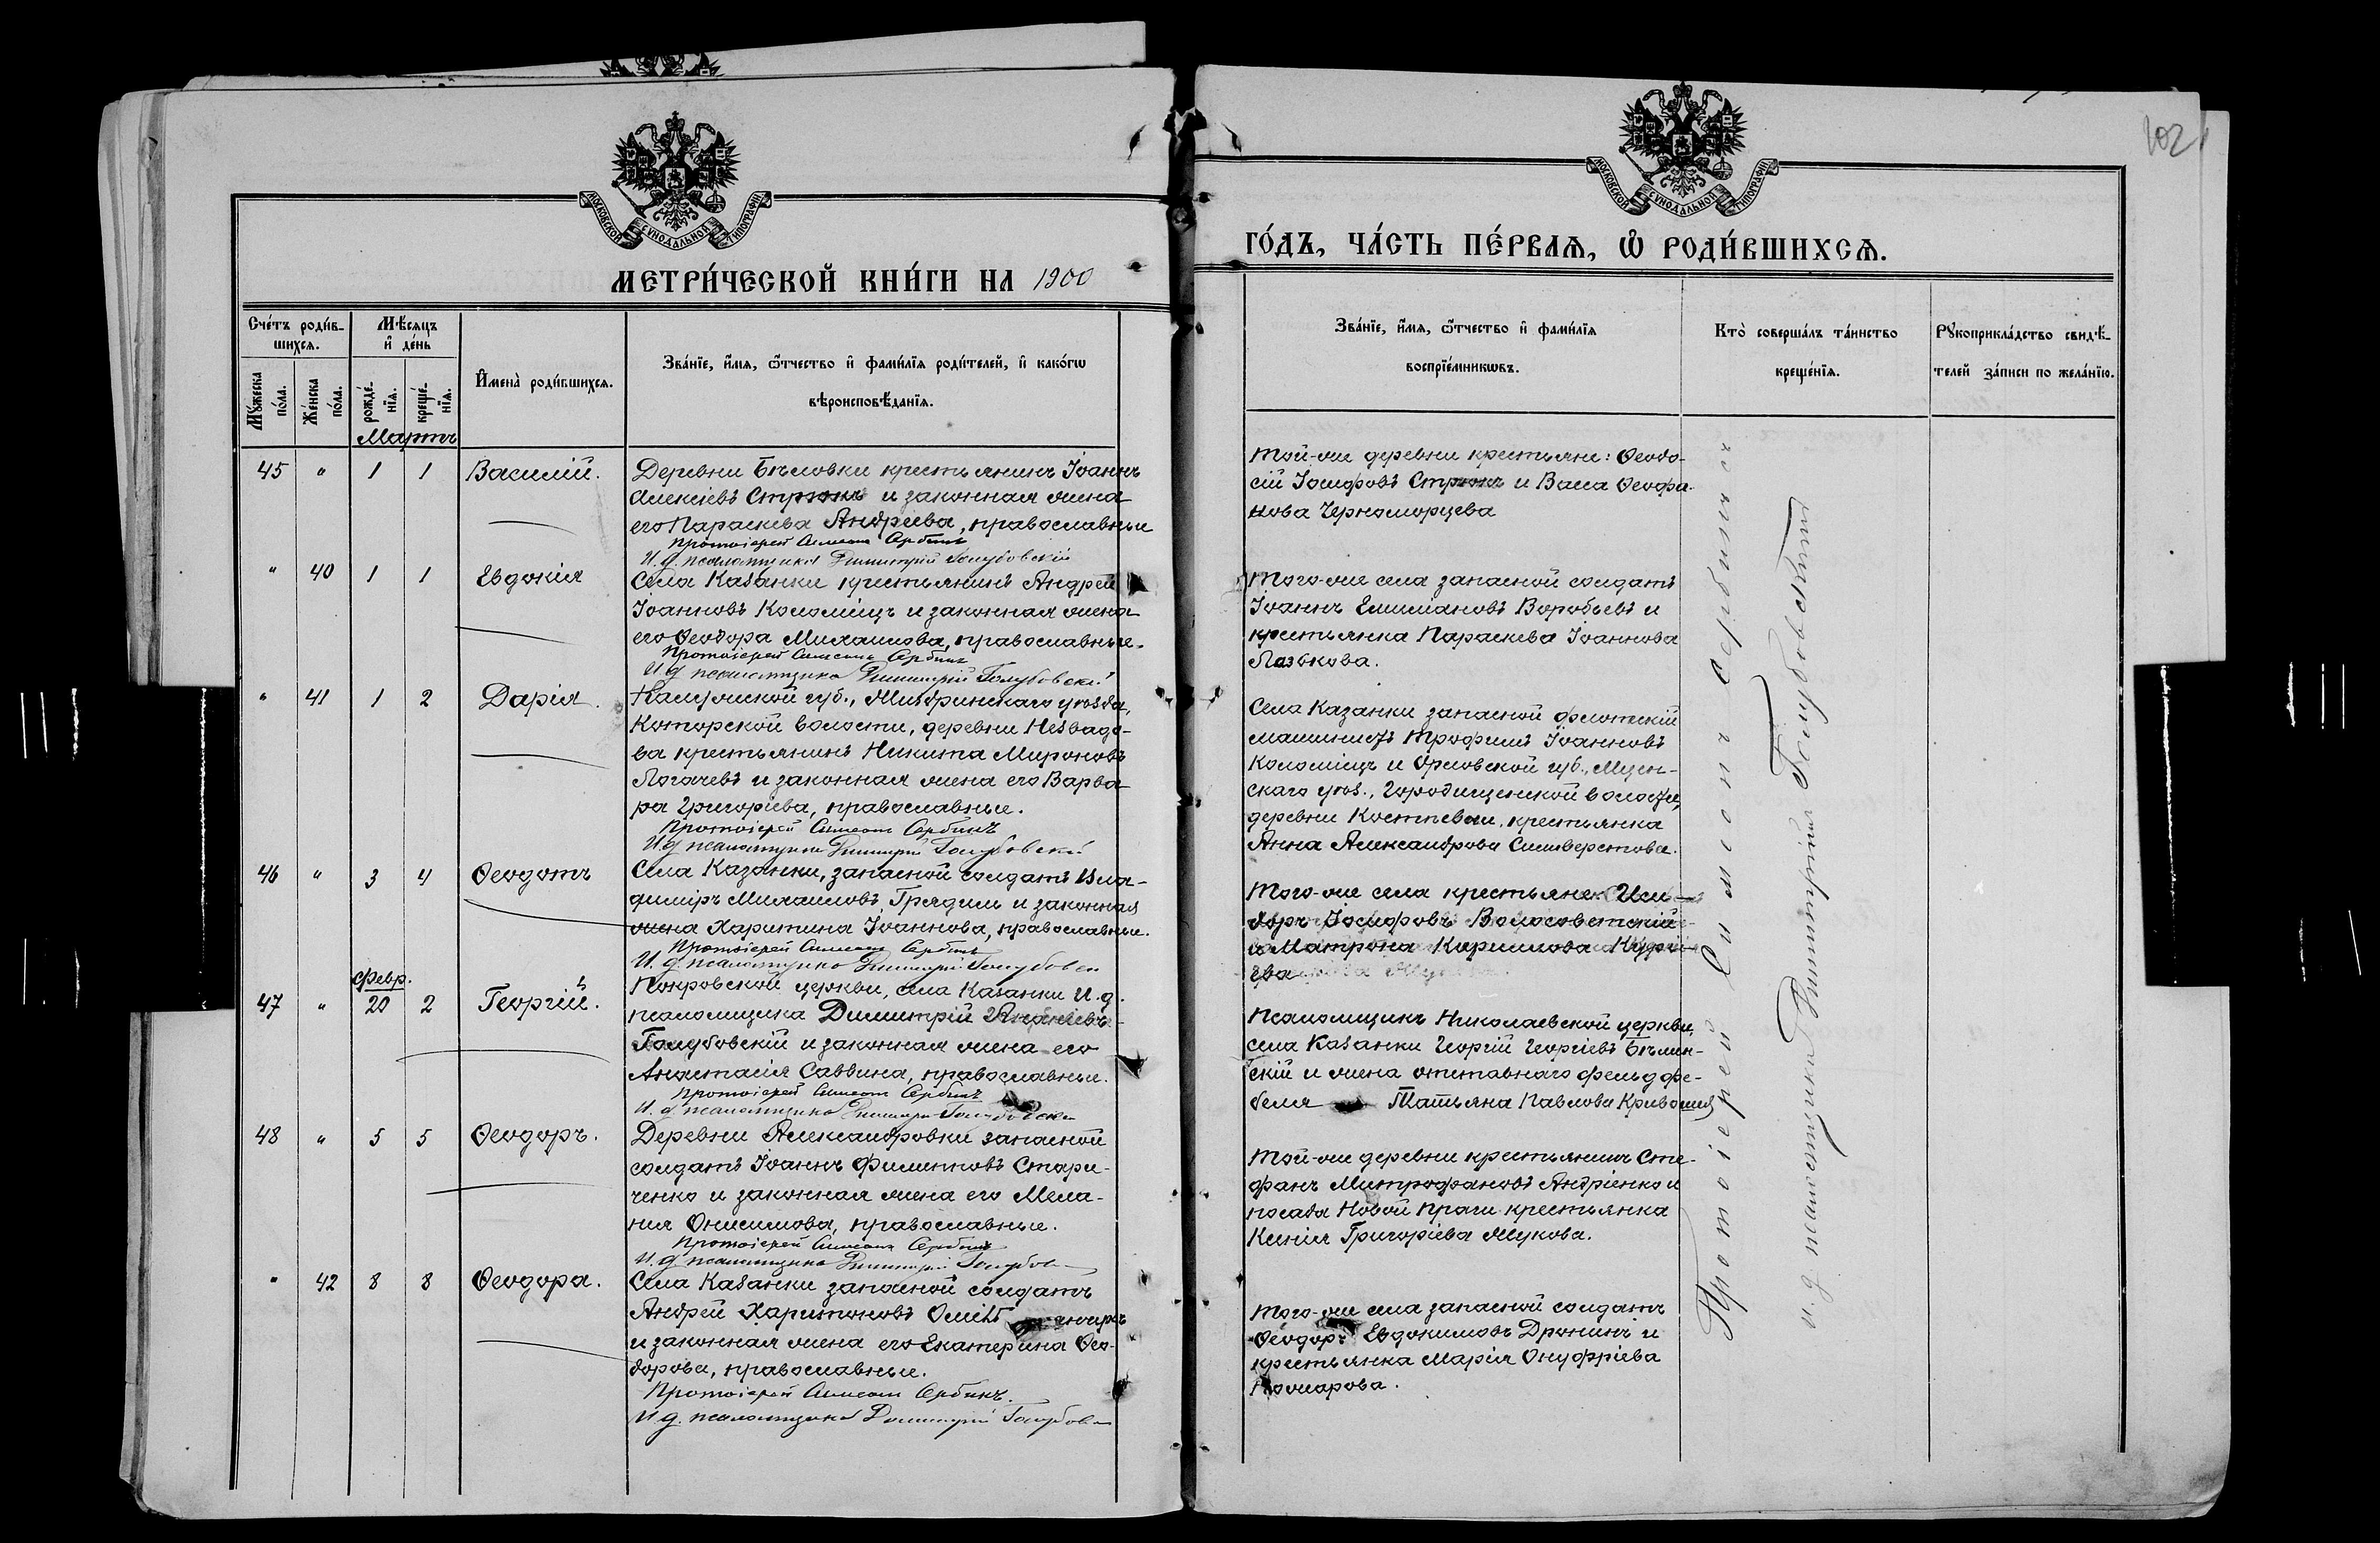 102
МОСКОВСКОЙ СѴНОДАЛЬНОЙ ТИПОГРАФІИ
МОСКОВСКОЙ СѴНОДАЛЬНОЙ ТИПОГРАФІИ
МЕТРИ́ЧЕСКОЙ КНИ́ГИ НА 1900
ГО́ДЪ, ЧА́СТЬ ПЕ́РВАѦ, Ѽ РОДИ́ВШИХСѦ.
Сче́тъ роди́в-
шихсѧ.
Мѣ́сѧцъ
и҆ де́нь
Мꙋ́жеска по́ла.
Же́нска по́ла.
рожде́-
нїѧ.
креще́-
нїѧ.
И҆мена̀ роди́вшихсѧ.
Зва́нїе, и҆́мѧ, ѻ҆́тчество и҆ фами́лїѧ роди́телей, и҆ како́гѡ
вѣроисповѣ́данїѧ.
Зва́нїе, и҆́мѧ, ѻ҆́тчество и҆ фами́лїѧ
воспрїе́мникѡвъ.
Кто̀ соверша́лъ та́инство
креще́нїѧ.
Рꙋкоприкла́дство свидѣ́-
телей за́писи по жела́нїю.
Мартъ
45 " 1 1 Василій.
Деревни Бѣловки крестьянинъ Іоаннъ
Алексіевъ и законная жена
его Параскева Андреева, православные
Протоіерей Симеонъ Сербинъ
И. д. псаломщика Димитрій Голубовскій
Той-же деревни крестьяне: Ѳеодо-
сій Іосифовъ и Васса Ѳеофа-
нова Черноморцева
" 40 1 1 Евдокія
Села Казанки крестьянинъ Андрей
Іоанновъ Коломіецъ и законная жена
его Ѳеодора Михаилова, православные.
Протоіерей Симеонъ Сербинъ
И. д. псаломщика Димитрій Голубовскій
Того-же села запасной солдатъ
Іоаннъ Емиліановъ Воробьевъ и
крестьянка Параскева Іоаннова
Лазькова.
" 41 1 2 Дарія.
Калужской губ., Жиздринскаго уѣзда,
Которской волости, деревни
крестьянинъ Никита Мироновъ
Логачевъ и законная жена его Варва-
ра Григоріева, православные.
Протоіерей Симеонъ Сербинъ
И. д. псаломщика Димитрій Голубовскій
Села Казанки запасной флотскій
машинистъ Трофимъ Іоанновъ
Коломіецъ и Орловской губ., Мцен-
скаго уѣз., Городищенской волости,
деревни крестьянка
Анна Александрова Сильверстова.
46 " 3 4 Ѳеодотъ
Села Казанки, запасной солдатъ Вла-
диміръ Михаиловъ Грядиль и законная
жена Харитина Іоаннова, православные.
Протоіерей Симеонъ Сербинъ
И. д. псаломщика Димитрій Голубовскій
Того-же села крестьяне: Иси-
доръ Іосифовъ Волосоветскій
и Матрона Кириллова
ева
февр.
47 " 20 2 Георгій.
Покровской церкви, села Казанки И. д.
псаломщика Димитрій
Голубовскій и законная жена его
Анастасія Саввина, православные.
Протоіерей Симеонъ Сербинъ
И. д. псаломщика Димитрій Голубовскій
Псаломщикъ Николаевской церкви,
села Казанки Георгій Георгіевъ Бѣлин-
скій и жена отставнаго фельдфе-
беля Татьяна Павлова
48 " 5 5 Ѳеодоръ.
Деревни Александровки запасной
солдатъ Іоаннъ Филипповъ Стари-
ченко и законная жена его Мела-
нія Онисимова, православные.
Протоіерей Симеонъ Сербинъ
И. д. псаломщика Димитрій Голубов
Той-же деревни крестьянинъ Сте-
фанъ Митрофановъ Андріенко и
посада Новой Праги крестьянка
Ксенія Григоріева Жукова.
" 42 8 8 Ѳеодора.
Села Казанки запасной солдатъ
Андрей Харитоновъ
и законная жена его Екатерина Ѳео-
дорова, православные.
Протоіерей Симеонъ Сербинъ.
И. д. псаломщика Димитрій Голубов
Того-же села запасной солдатъ
Ѳеодоръ Евдокимовъ Дронинъ и
крестьянка Марія Онуфріева
Протоіерей Симеонъ Сербинъ
и. д. псаломщика Димитрій Голубовскій